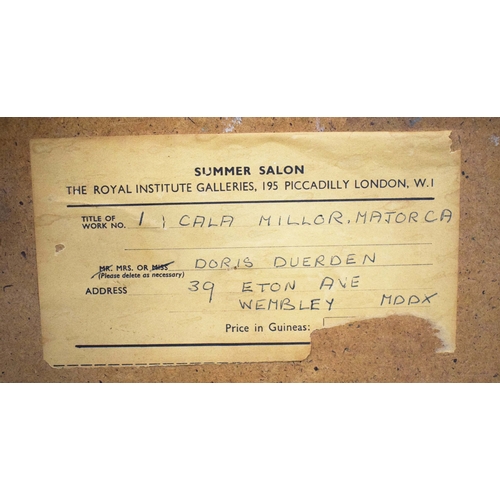 SUMMER SALON
THE ROYAL INSTITUTE GALLERIES, 195 PICCADILLY LONDON, W.1
TITLE OF
WORK NO. 1 ; CALA MILLOR. MAJORCA
MR. MRS. OR MISS DORIS DUERDEN
(Please delete as necessary)
ADDRESS 39 ETON AVE
WEMBLEY MDDX
Price in Guineas: